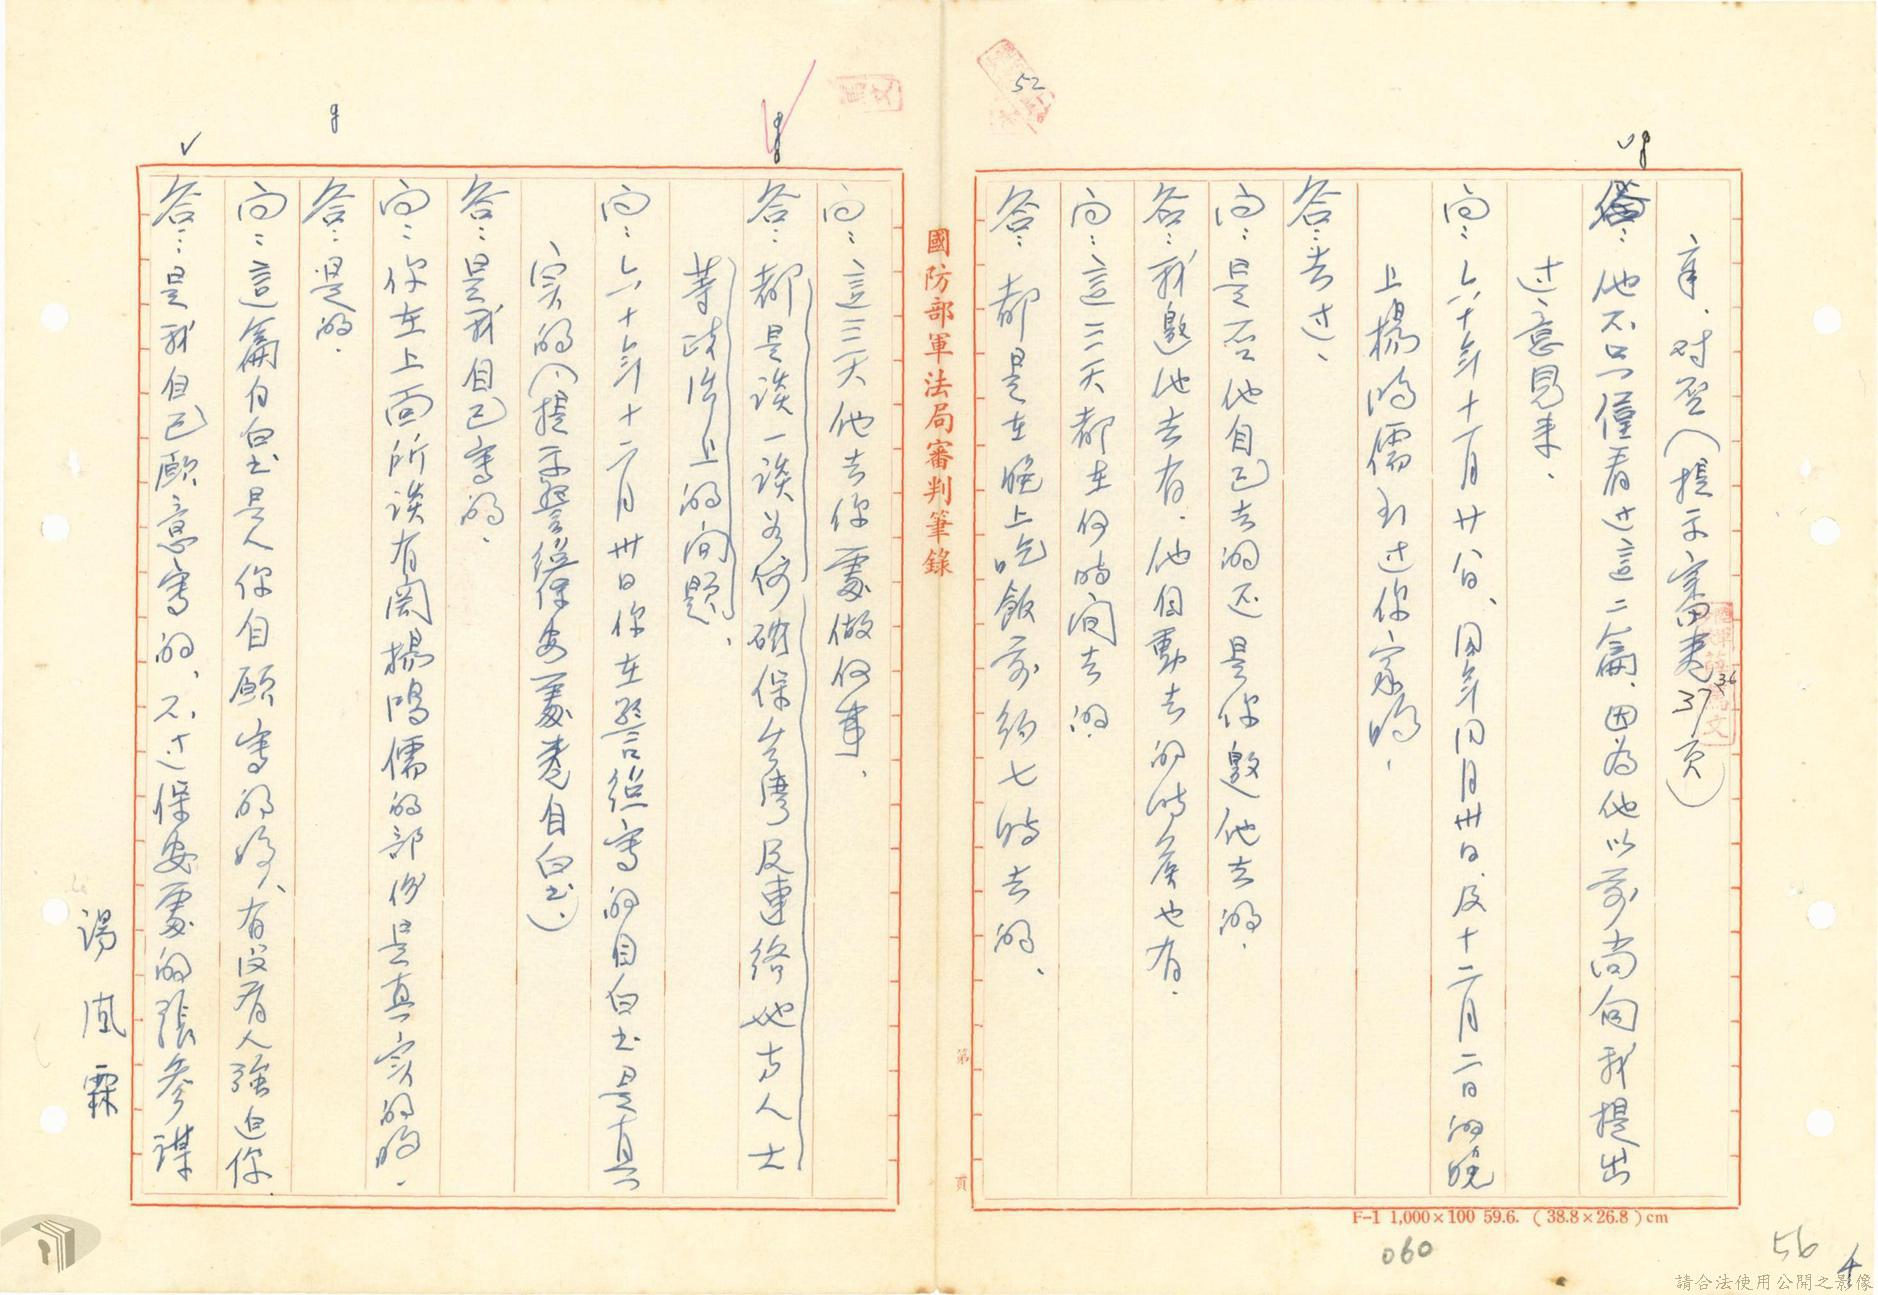 章．对否（提示審畫37頁）
答：他不只僅看过這二篇．因為他以前尚向我提出
过意見来．
问：六十年十一月廿八日、同年同月卅日、及十二月二日的晚
上楊鴻儒到过你家嗎．
答：去过．
问：是否他自己去的还是你邀他去的．
答：我邀他去有．他自動去的時候也有．
问：這三天都在何時间去的．
答：都是在晚上吃飯前約七時去的．
国防部軍法局審判筆錄
第
頁
问：這三天他去你處做何事．
答：都是談一談如何確保台灣及連絡地方人士
等政治上的问題．
问：六十年十二月卅日你在警總寫的自白书是真
实的（提示警總保安處卷自白书．）
答：是我自己寫的．
问：你在上面所談有関楊鴻儒的部份是真实的嗎．
答：是的．
问：這篇自白书是你自願寫的嗎、有沒有人強迫你．
答：是我自己願意寫的．不过保安處的張參謀
湯凤霖
52
36
F-1 1,000×100 59.6. (38.8×26.8)cm
060
56
4
請合法使用公開之影像